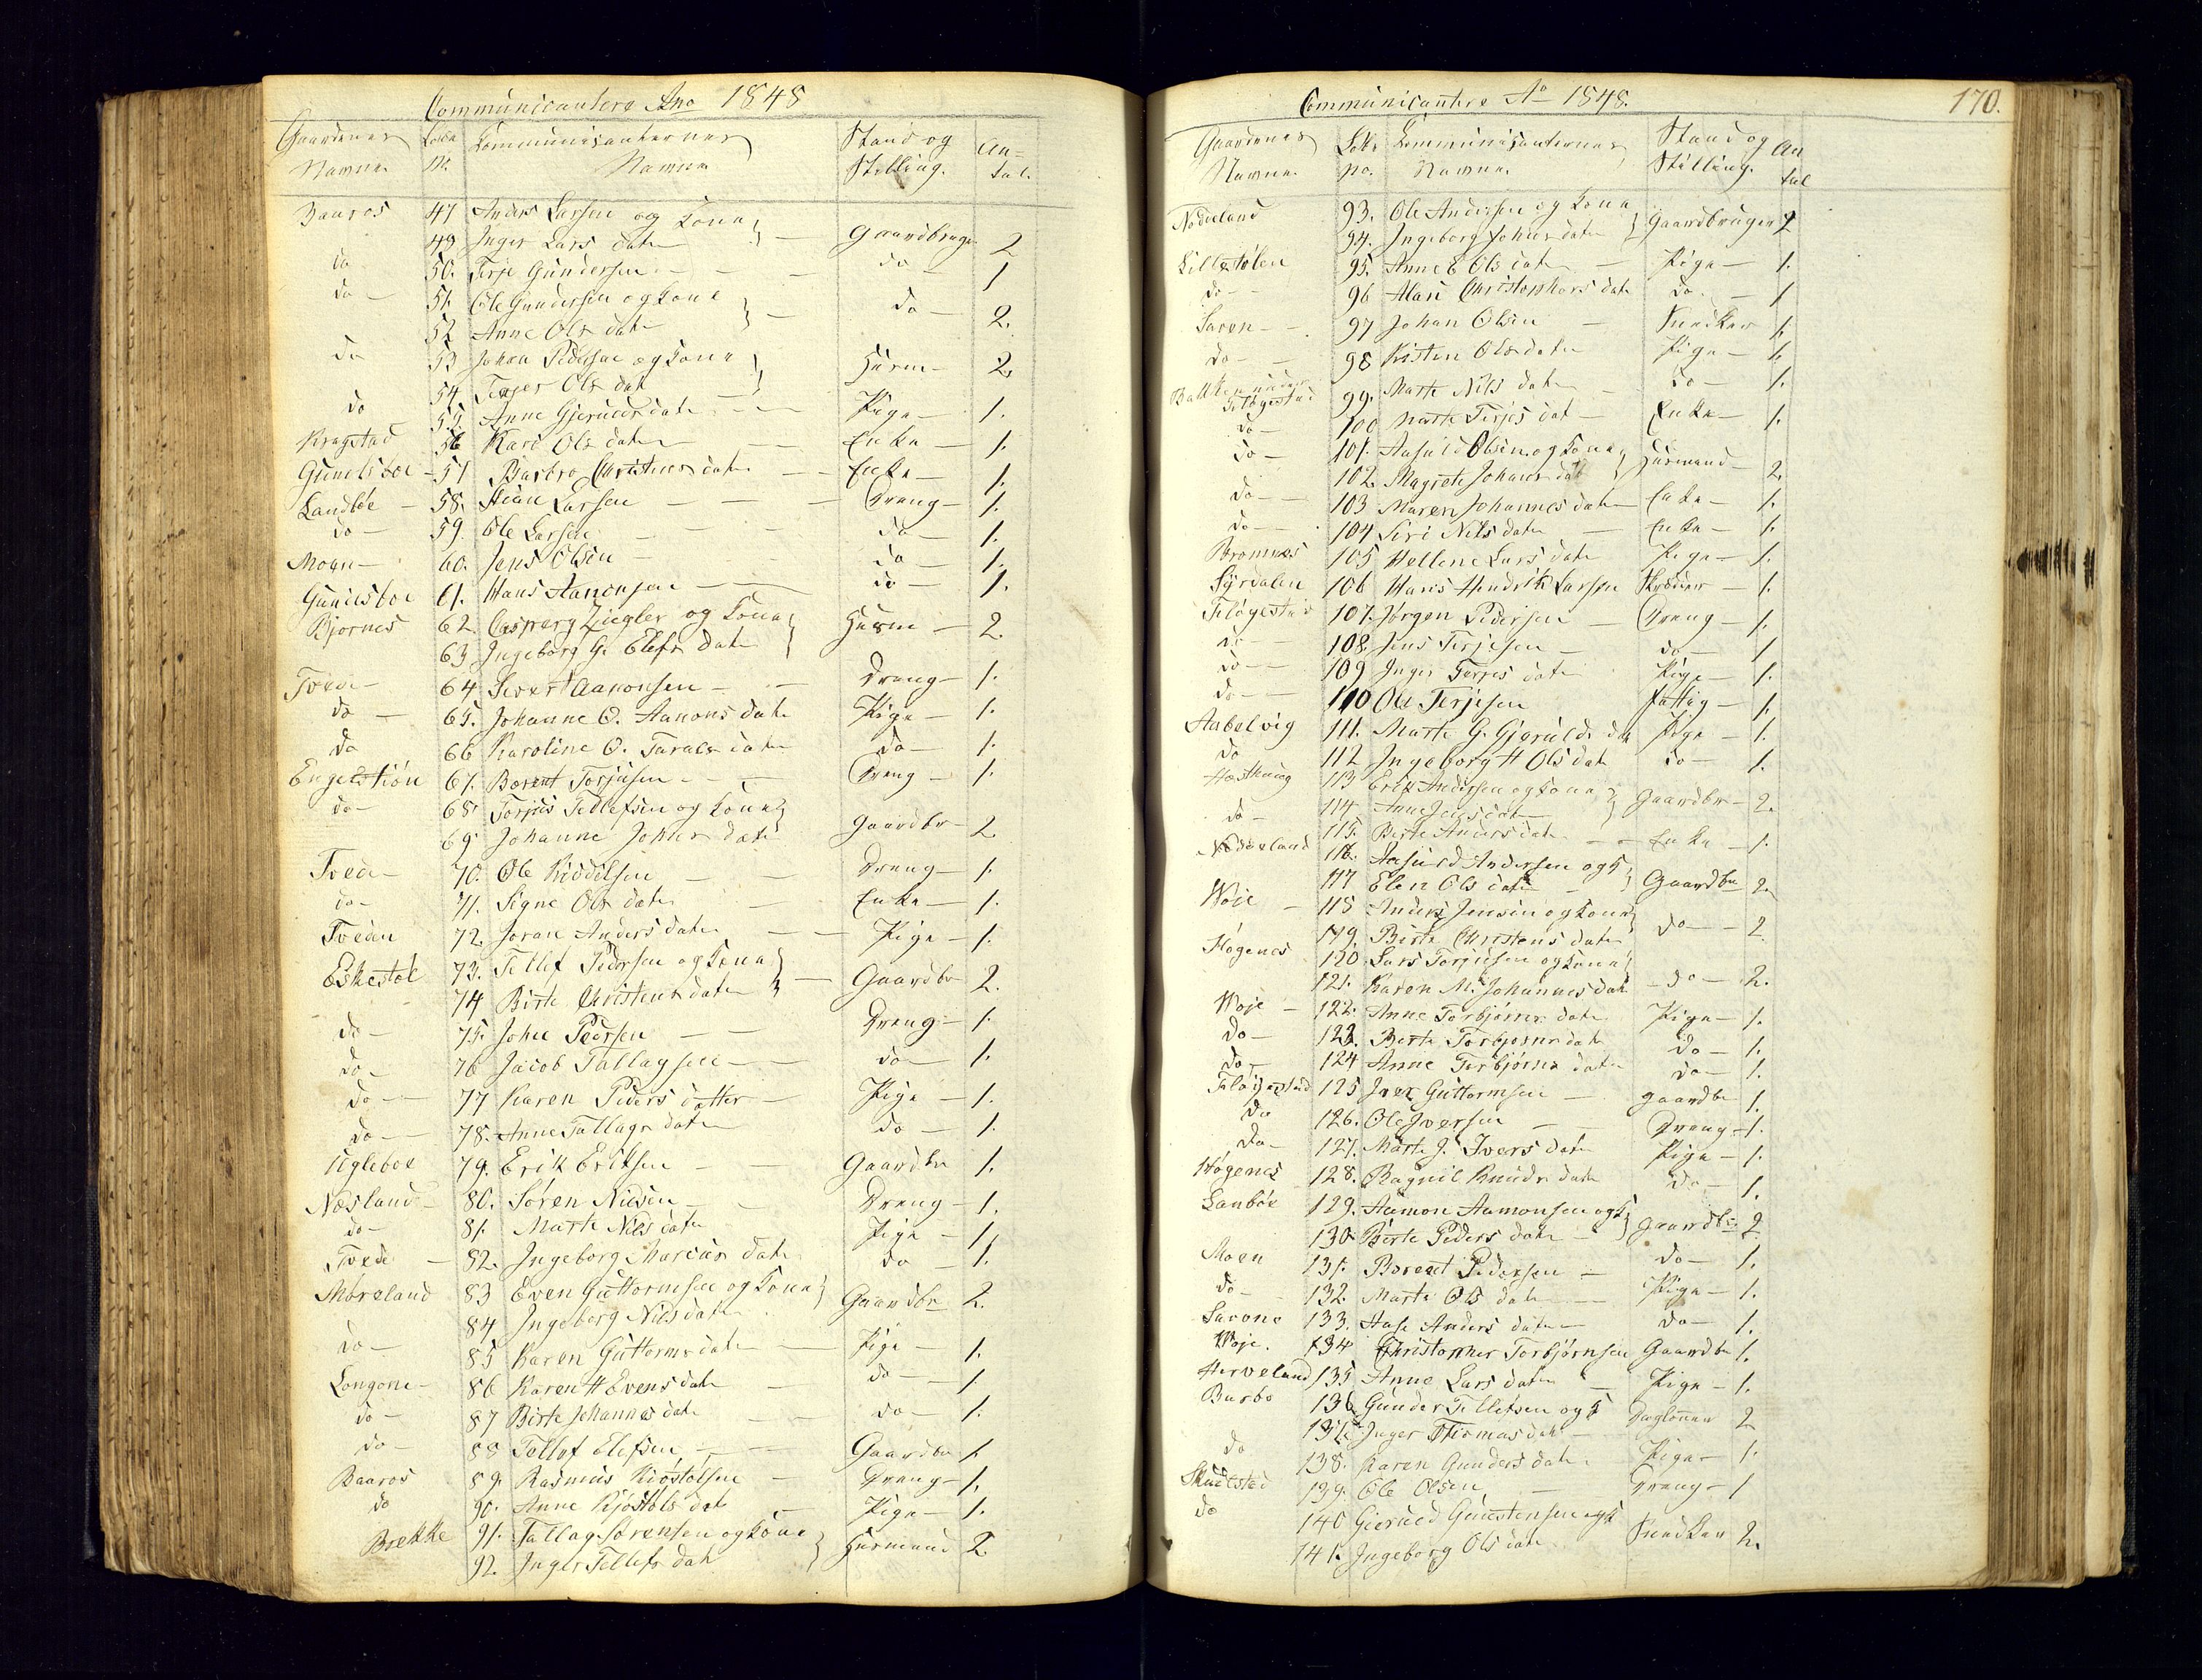 Communicantere Ano 1848
Gaardenes Løbe Kommunicanternes Stand og An=
Navne No. Navne Stilling. tal.
Baaros 47 Anders Larsen og Kone
49 Inger Lars dater Gaardbruger 2
do 50. Terje Gundersen do 1
do 51. Ole Gundersen og Kone do
52 Anne Ols dat 2.
do 53 Johan Pedersen og Kone Husm 2.
54 Ols dat
do 55. Anne Gjeruldsdat Pige 1.
Kragstad 56 Kari Ols dater Enke 1.
Gundersboe 57 Barbro Christens dater Enke 1.
Landbøe 58. Stian Larsen Dreng 1.
do 59. Ole Larsen do 1.
Moen 60. Jens Olsen do 1.
61. Hans Aanonsen do 1.
Bjornes 62. Casper Ziegler og Kone Husm 2.
63 Ingeborg G. Elefs dater
Tvede 64. Sivert Aanonsen Dreng 1.
do 65. Johanne O. Aanons dat Pige 1.
do 66 Karoline O. Taralds dater do 1.
Engelstiøn 67. Berent Torjusen Dreng 1.
do 68 Torjus Tellefsen og Kone
69 Johanne Johns dat Gaardbr 2.
Tvede 70. Ole Kiddelsen Dreng 1.
do 71. Signe Ols dater Enke 1.
Tveden 72. Joran Anders dater Pige 1.
Eskestøl 73. Tellef Pedersen og Kone Gaardbr 2.
74 Birte Christens dater
do 75. John Pedersen Dreng 1.
do 76 Jacob Tallagsen do 1.
do 77 Karen Peders datter Pige 1.
do 78. Anne Tallags dater do 1.
Ugleboe 79. Erik Eriksen Gaardbr 1.
Næsland 80. Søren Nielsen Dreng 1.
do 81. Marte Nils dater Pige 1.
Tvede 82. Ingeborg Marcus dat do 1.
Møreland 83 Even Guttormsen og Kone Gaardbr 2.
84 Ingeborg Nils dater
do 85 Karen Guttorms dater Pige 1.
Longone 86 Karen H Evens dat do 1.
do 87 Birte Johannes dat do 1.
do 88 Tellef Elefsen Gaardbr 1
Baaros 89. Rasmus Kiøstolsen Dreng 1.
do 90. Anne Kjøstols dat Pige 1.
Brekke 91. Tallag Sørensen og Kone Husmand 2
92. Inger Tellefs dat
Communicantere Ao 1848. 170.
Gaardenes Løbe Kommunicanternes Stand og An
Navne. No. Navne. Stilling. tal
Nødeland 93. Ole Andersen og Kone Gaardbruger 2
94. Ingeborg Johns dater
Lillestølen 95. Anne E Ols dat Pige 1.
do 96 Mari Christophers dat do 1
Saven 97 Johan Olsen Snedker 1.
do 98 Kisten Ols dater Pige 1.
Bakken under Fløgestad 99. Marte Nils dater do 1.
do 100 Marte Terjes dat Enke 1.
do 101. Aasuld Olsen og Kone Husmand 2.
102. Magrete Johans dat
do 103 Maren Johannes dat Enke 1.
do 104 Siri Nils dater Enke 1.
Bromnes 105 Hellene Lars dat Pige 1.
Syrdalen 106 Hans Hendrik Larsen Skræder 1.
Fløgestad 107. Jørgen Pedersen Dreng 1.
do 108. Jens Terjesen do 1
do 109 Inger Terjes dater Pige 1.
do 110 Ole Terjesen Fattig 1.
Aabelvig 111. Marte G. Gjerulds dat Pige 1.
do 112 Ingeborg H Ols dat do 1.
113 Erik Andersen og Kone Gaardbr 2.
do 114. Anne Jens dat
115. Birte Anders dat Enke 1.
Nødeland 116. Aasuld Andersen og K
117 Elen Ols dater Gaardbr 2.
Woje 118 Anders Jensen og Kone do 2
119. Birte Christens dater
Høgenes 120 Lars Torjusen og Kone
121. Karen M. Johannes dat do 2.
Woje 122. Anne Torbjørns dater Pige 1.
do 123. Berte Torbjorns dat do 1.
do 124 Anne Torbjørns dater do 1.
Fløgestad 125 Iver Guttormsen gaardbr 1.
do 126. Ole Iversen Dreng 1.
do 127. Marte J. Ivers dat Pige 1.
Høgenes 128. Ragnil Knuds dat do 1.
Lanbøe 129. Aamon Aamonsen og K gaardbr. 2
130. Birte Peders dat
Moen 131. Berent Pedersen do 1.
do 132. Marte Ols dat Pige 1.
Savone 133. Aase Anders dater do 1.
Woje. 134 Christopher Torbjørnsen Gaardbr 1.
Herveland 135 Anne Lars dater Pige 1.
Barbo 136 Gunder Tellefsen og K Dagløner 2
137 Inger Thomas dat
do 138. Karen Gunders dat Pige 1.
Skuelstad 139. Ole Olsen Dreng 1
do 140 Gierued Gunstensen og K Snedker 2.
141. Ingeborg Ols dat